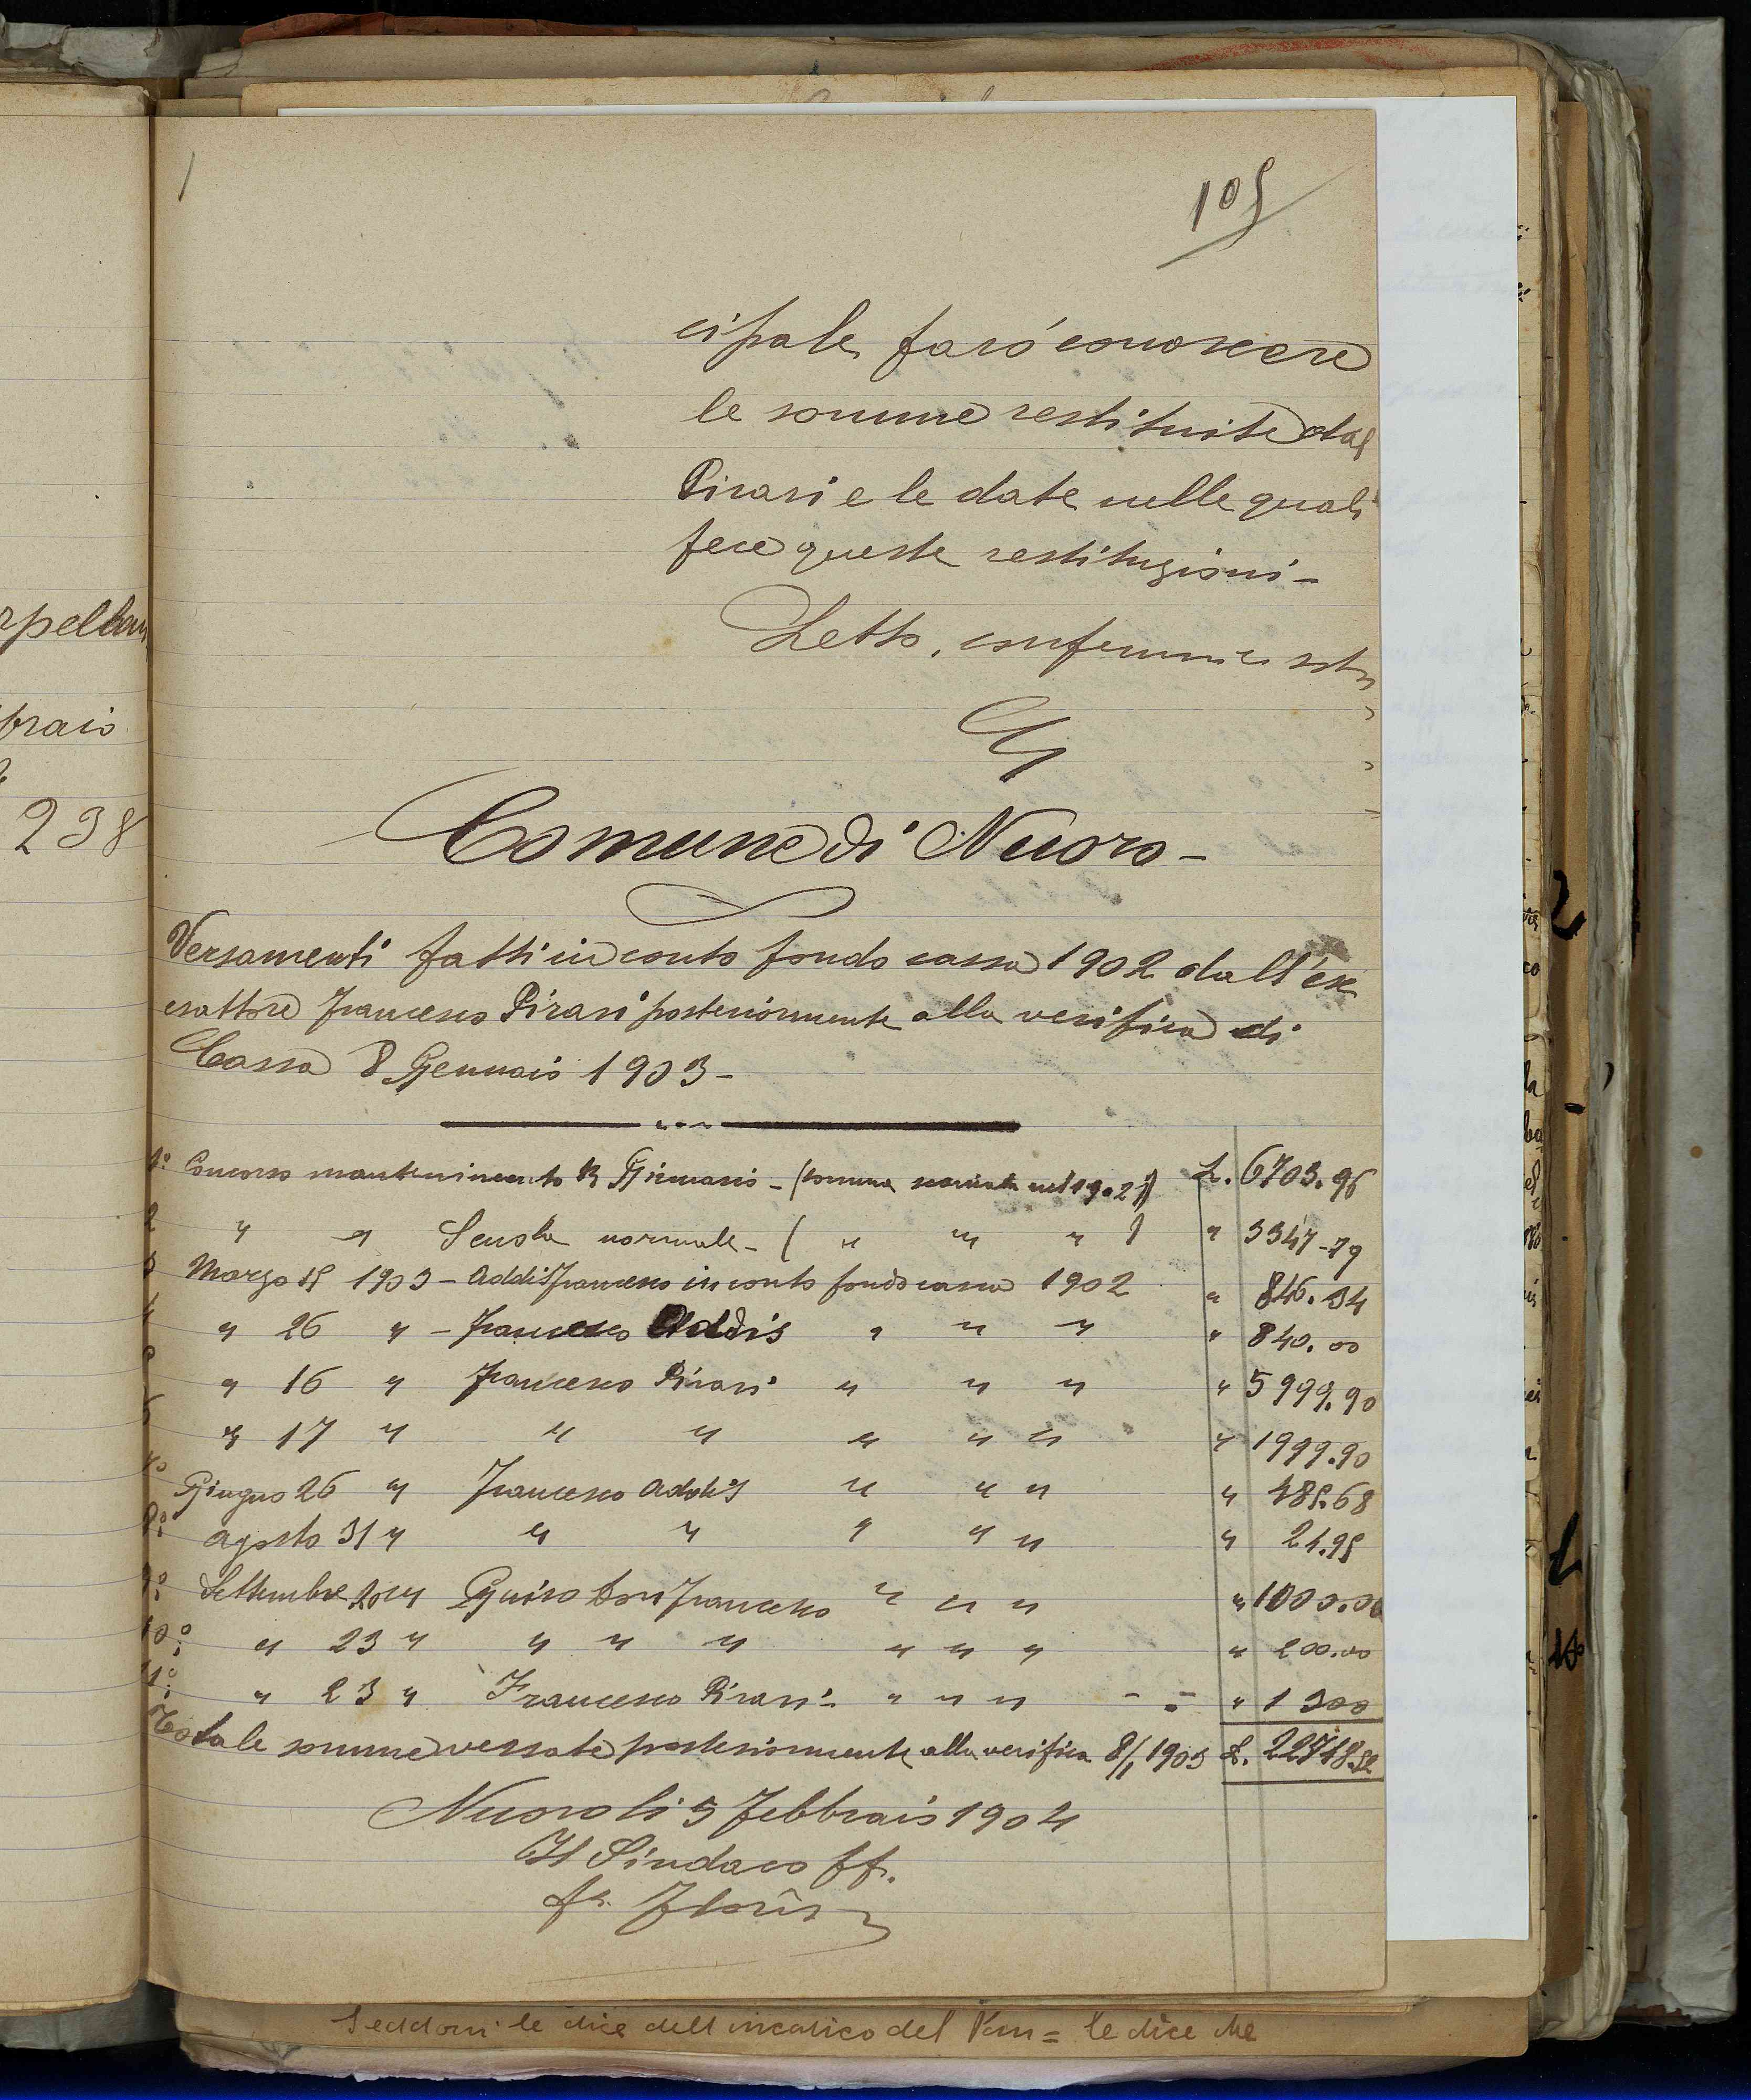 105
cipale farò conoscere
le somme restituite dal
Pirari e le date nelle quali
fece queste restituzioni -
Letto, conferma e sotto
Comune di Nuoro -
Versamenti fatti in conto fondo cassa 1902 dall'ex
esattore Francesco Pirari posteriormente alla verifica di
Cassa 8 Gennaio 1903 -
1° Concorso mantenimento R Ginnasio - (somma scaricata nel 1902) L. 6703.96
2 " " Scuola normale - ( " " " ) " 3347-79
3 Marzo 15 1903 - Addis Francesco in conto fondo cassa 1902 " 846.34
4 " 26 " - Francesco Addis " " " " 840.00
5 " 16 " Francesco Pirari " " " " 5999.90
6 " 17 " " " " " " " 1999.90
7° Giugno 26 " Francesco Addis " " " " 488.68
8° Agosto 31 " " " " " " " 21.95
9° Settembre 20 " Guiso Don Francesco " " " " 1000.00
10° " 23 " " " " " " " " 200.00
11° " 23 " Francesco Pirari - " " " - = " 1300
Totale somme versate posteriormente alla verifica 8/1 1903 L. 22748.52
Nuoro li 5 Febbraio 1904
Il Sindaco ff.
fr Floris
le dice dell'incarico del = le dice che
rpellan
braio
238